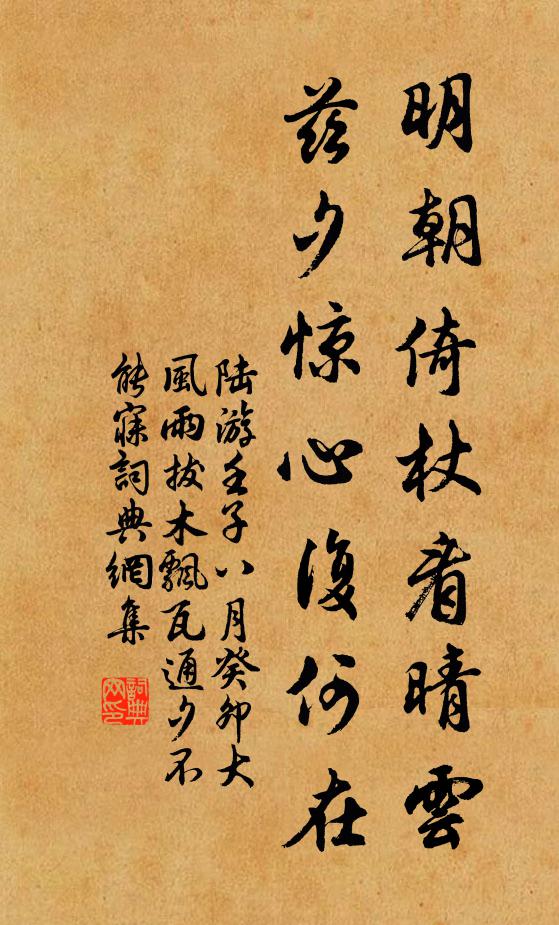 明朝倚杖看晴雲
茲夕惊心復何在
陆游壬子八月癸卯大
風雨拔木飄瓦通夕不
能寐詞典網集
詞典
网印